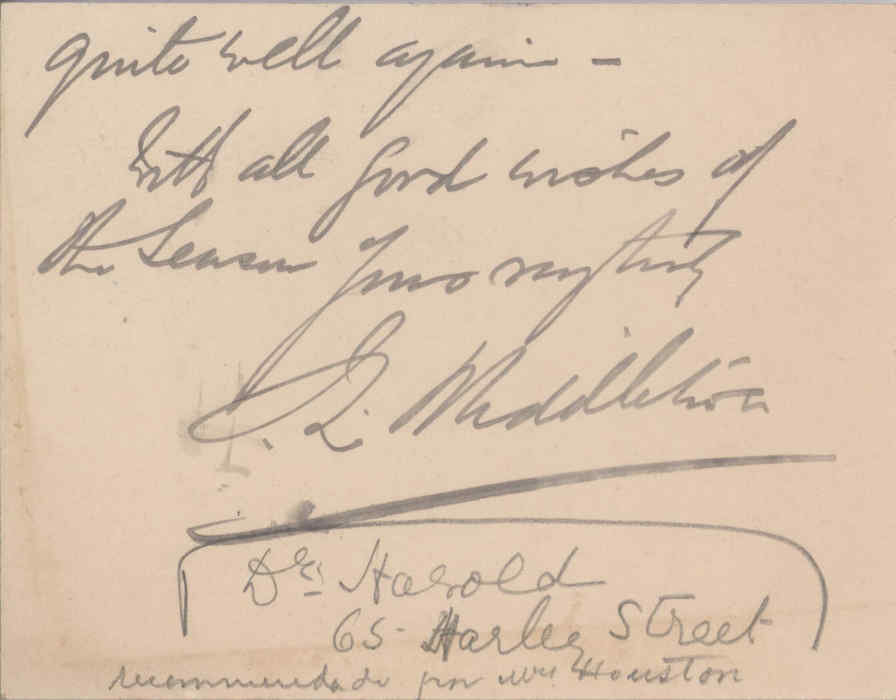 quite well again –
With all good wishes of
the Season Yours very truly
J. L. Middleton
Drs Harold
65 Harley Street
recommendado por Mrs Houston